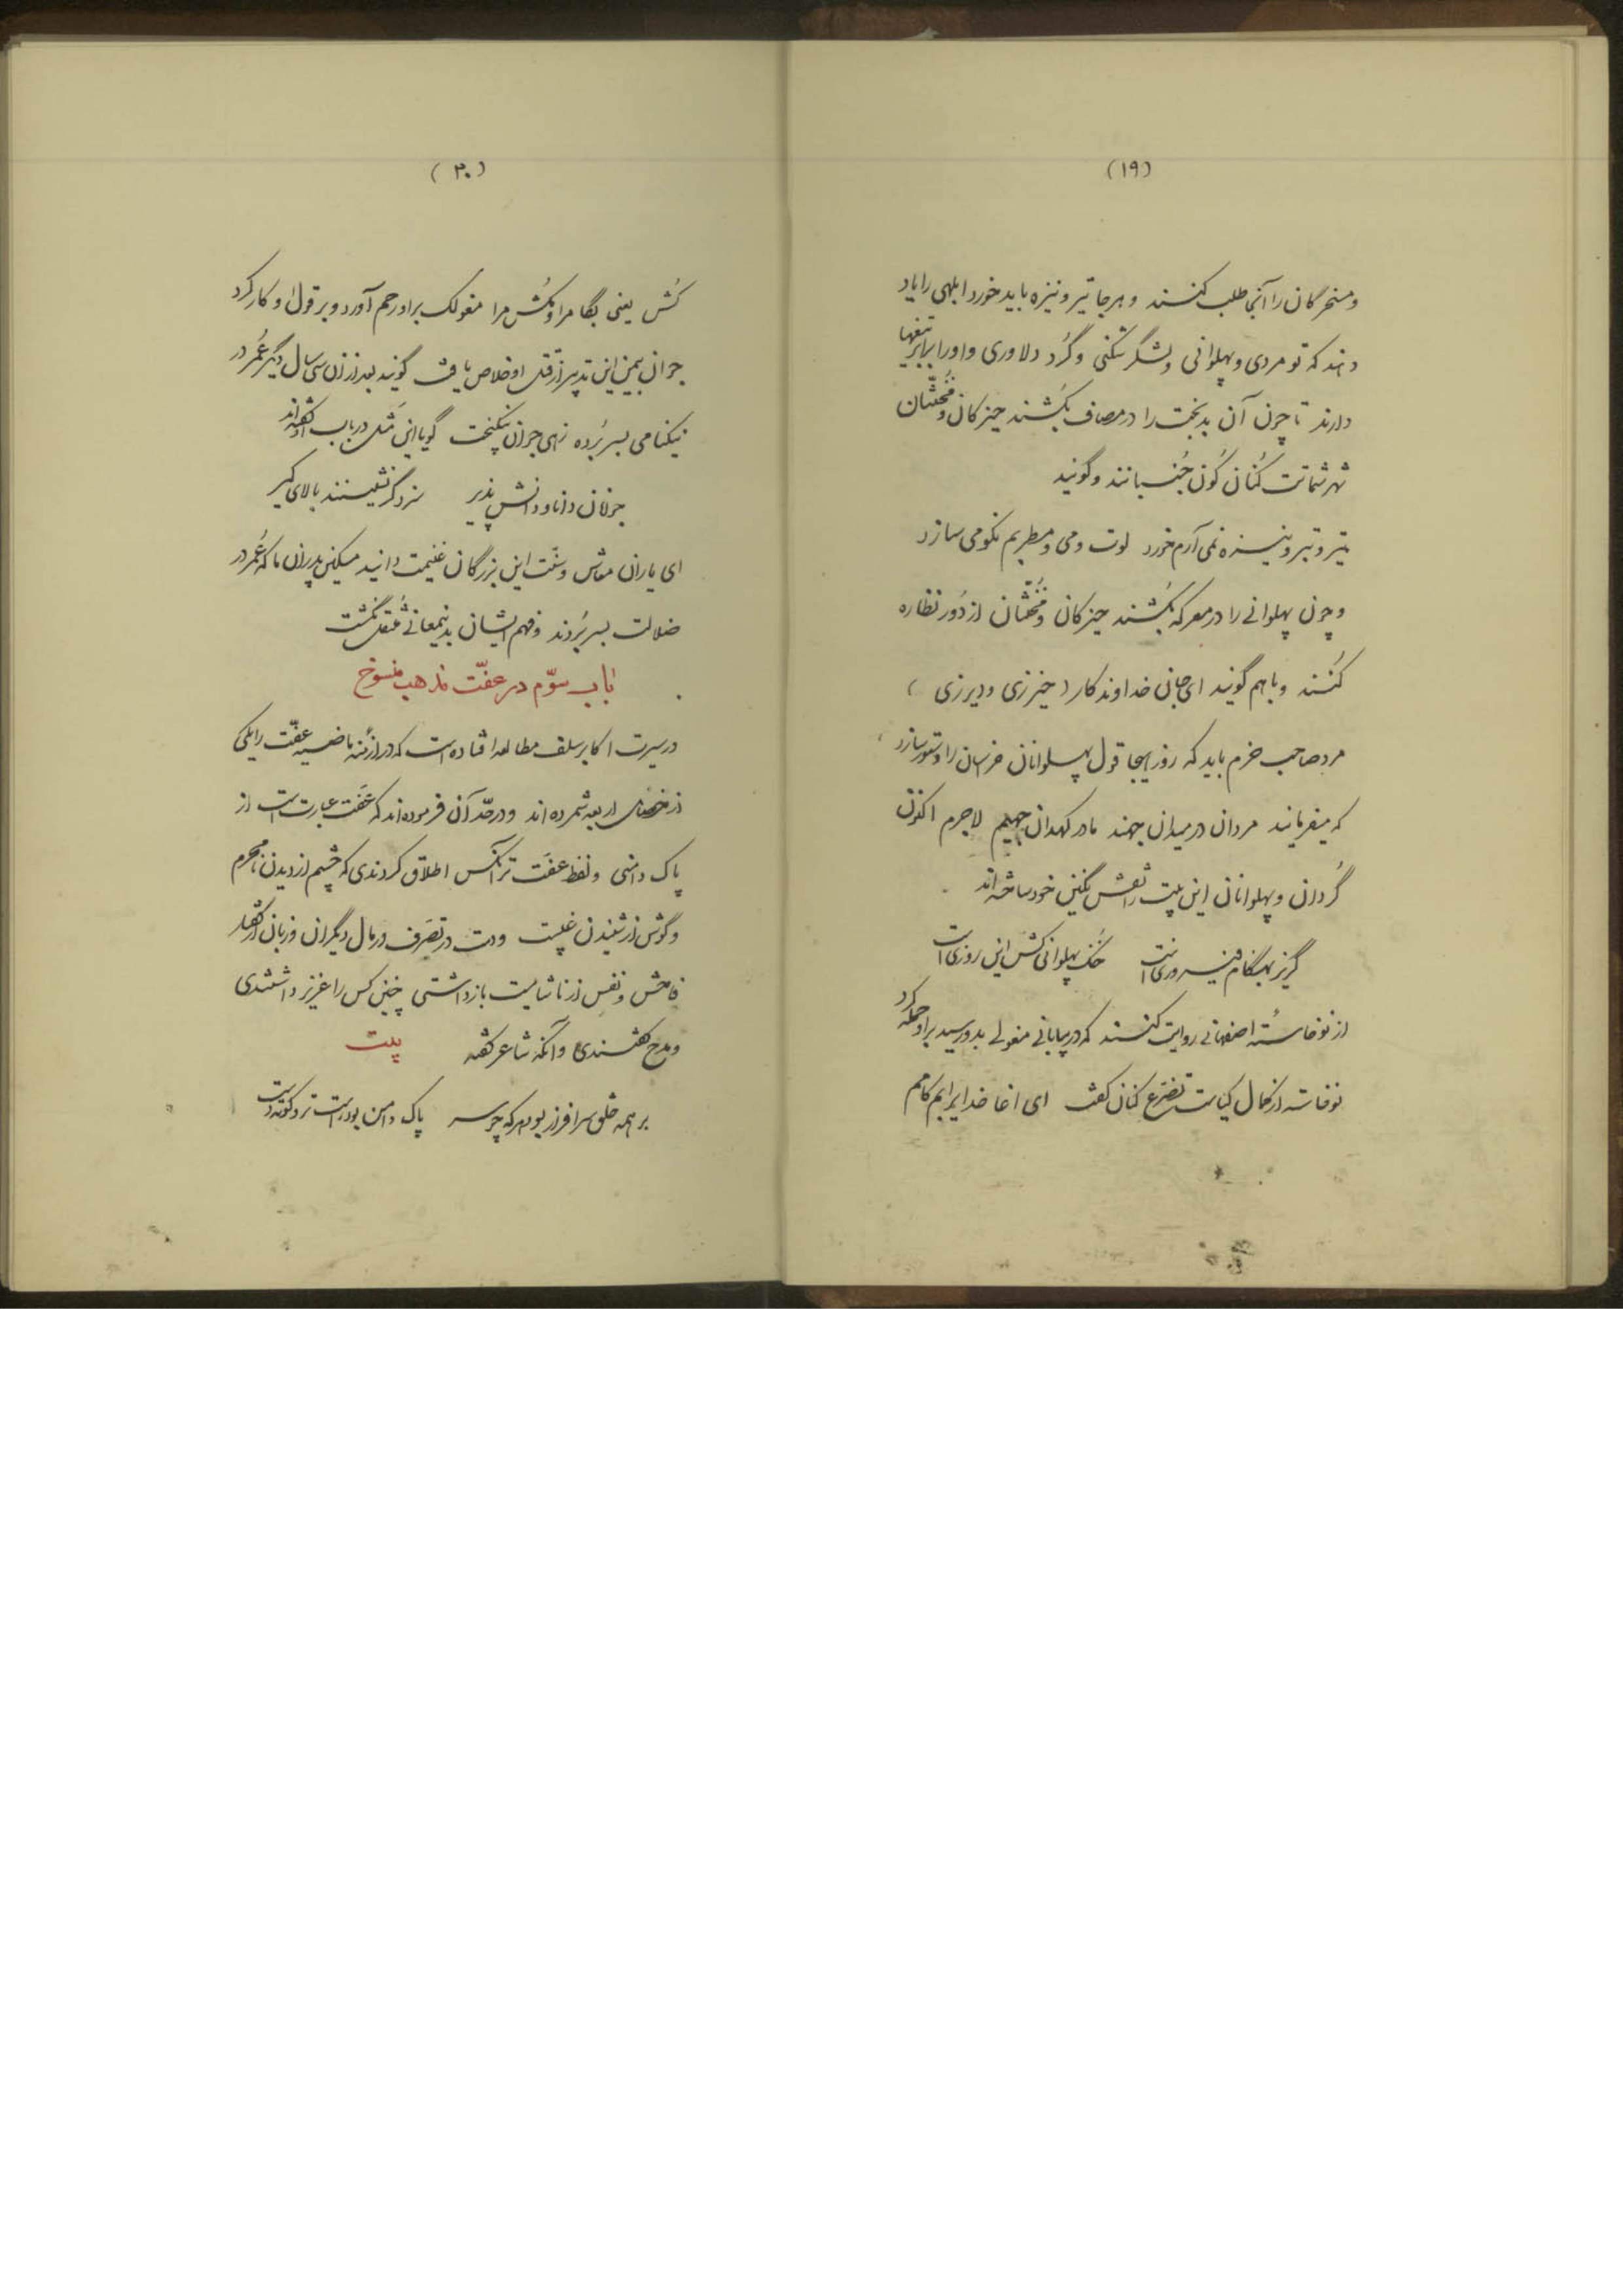 (۱۹)
و مسخرگان را آنجا طلب کنند و هر جا تیر و نیزه باید خورد ابلهی را یاد
دهند که تو مردی و پهلوانی و لشگر شکنی و گُرد دلاوری و او را برابر تیغها
دارند تا چون آن بدبخت را در مصاف بکُشند حیزکان و مُخنّثان
شهر شماتت کُنان کُون جُنبانند و گویند
تیر و تبر و نیزه نمی آرم خورد لوت و می و مطربم نکو می سازد
و چون پهلوانی را در معرکه بکُشند حیزکان و مُخنّثان از دُور نظاره
کُنند و با هم گویند ای جان خداوندکار (حیز زی و دیر زی)
مرد صاحب حزم باید که روز هیجا قول پهلوانان خراسان را دستور سازد
که میفرمایند مردان در میدان جهند ما در کهدان جهیم لاجرم اکنون
گُردان و پهلوانان این بیت را نقش نگین خود ساخته‌اند
گریز بهنگام فیروزی است خُنک پهلوانی کش این روزی است
از نوخاستهٔ اصفهانی روایت کنند که در بیابانی مغولی بدو رسید بر او حمله کرد
نوخاسته از کمال کیاست تضرّع کنان گفت ای اغا خدایرا بم کامم
(۲۰)
کُش یعنی بگا مرا و مکُش مرا مغولک بر او رحم آورد و بر قول او کار کرد
جوان بیمن این تدبیر از قتل او خلاص یافت گویند بعد از آن سی سال دیگر عُمر در
نیکنامی بسر بُرده زهی جوان نیکبخت گویا این مَثل در باب او گفته‌اند
جوانان دانا و دانش پذیر سزد گر نشینند بالای کیر
ای یاران معاش و سنّت این بزرگان غنیمت دانید مسکین پدران ما که عُمر در
ضلالت بسر بُردند و فهم ایشان بدینمعانی مُنتقل نگشت
باب سوّم در عفّت مذهب منسوخ
در سیرت اکابر سلف مطالعه افتاده است که در ازمُنه ماضیه عفّت را یکی
از خصایل اربعه شمرده‌اند و در حدّ آن فرموده‌اند که عفّت عبارت است از
پاک دامنی و لفظ عفّت بر آنکس اطلاق کردندی که چشم از دیدن نامحرم
و گوش از شنیدن غیبت و دست در تصرّف در مال دیگران و زبان از گفتار
فاحش و نفس از ناشایست باز داشتی چنین کس را عزیز داشتندی
و مدح گفتندی و آنکه شاعر گفته بیت
بر همه خلق سرافراز بود هر که چو سرو پاک دامن بود و راست رو و کوته دست